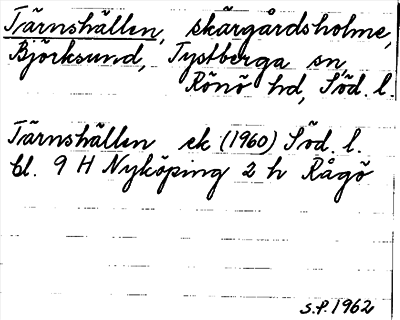 Tärnshällen, skärgårdsholme,
Björksund, Tystberga sn
Rönö hd, Söd. l.
Tärnshällen ek (1960) Söd. l.
bl. 9 H Nyköping 2 h Rågö
S.P. 1962